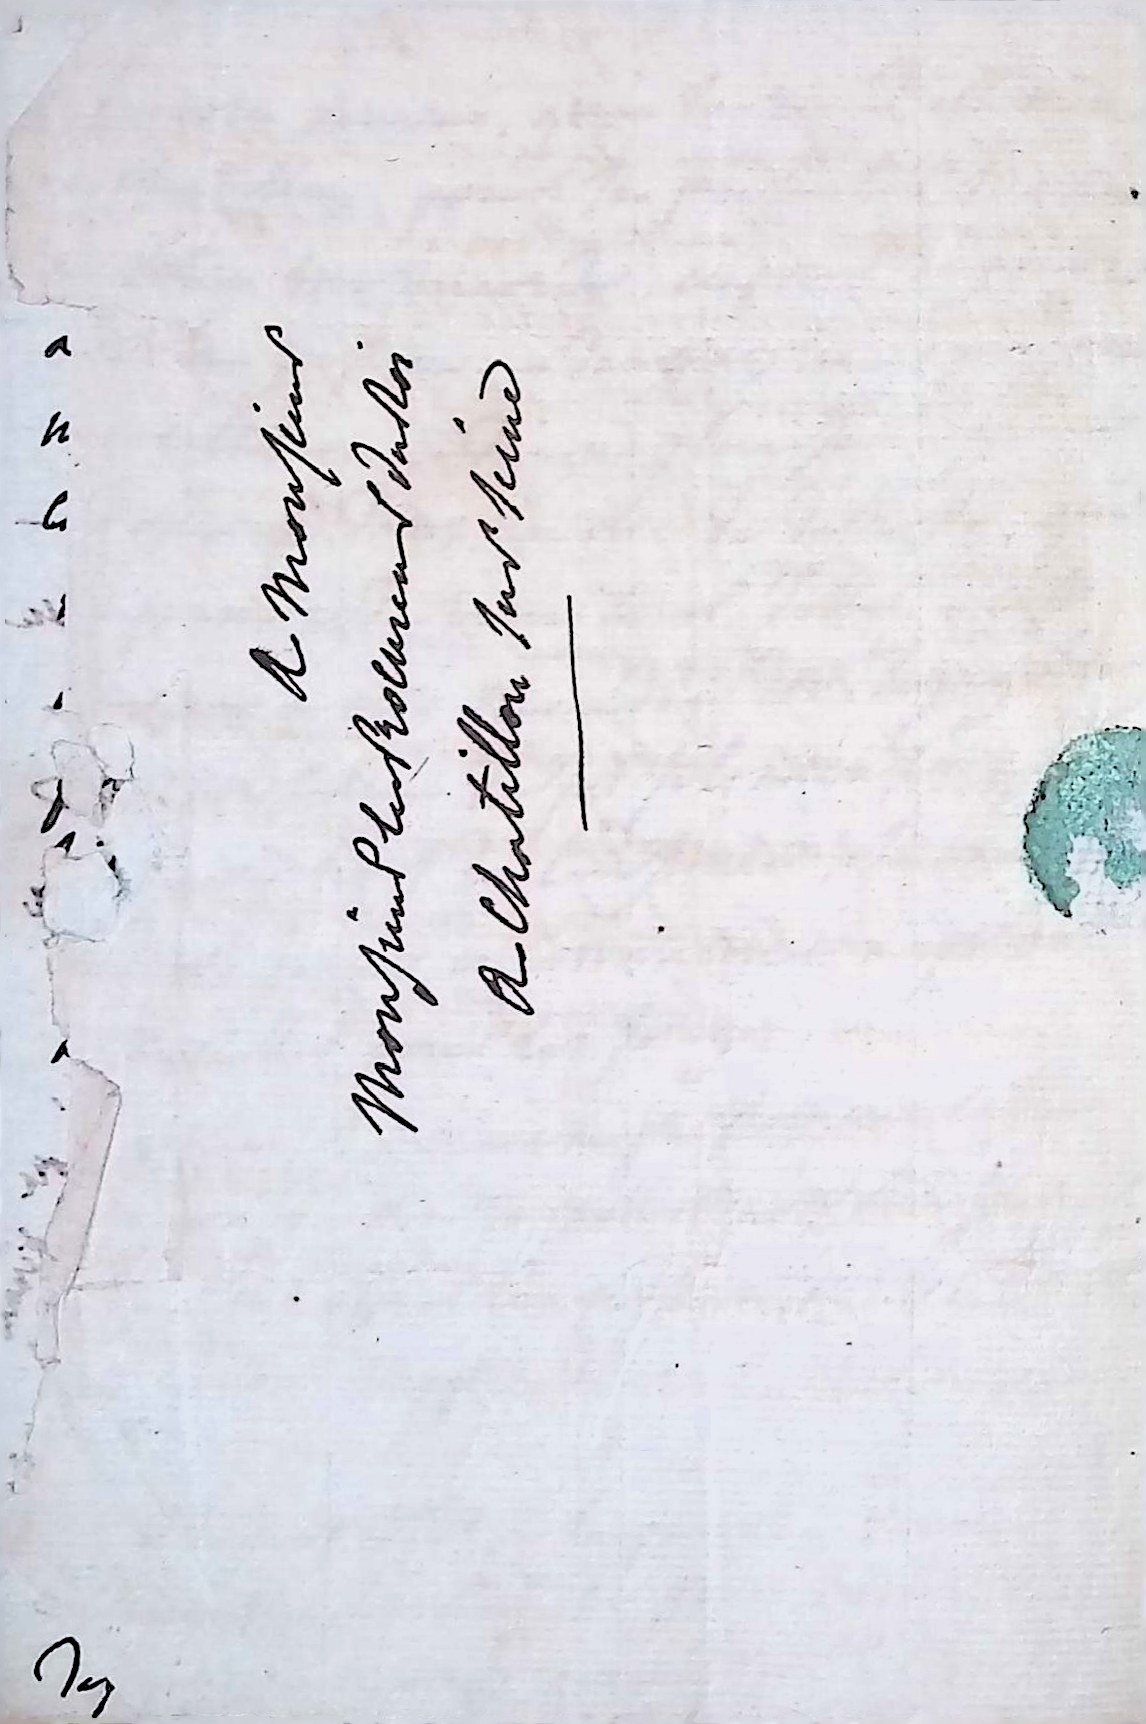 A Monsieur
Monsieur Le Procureur du Roi
A Chatillon sur Seine